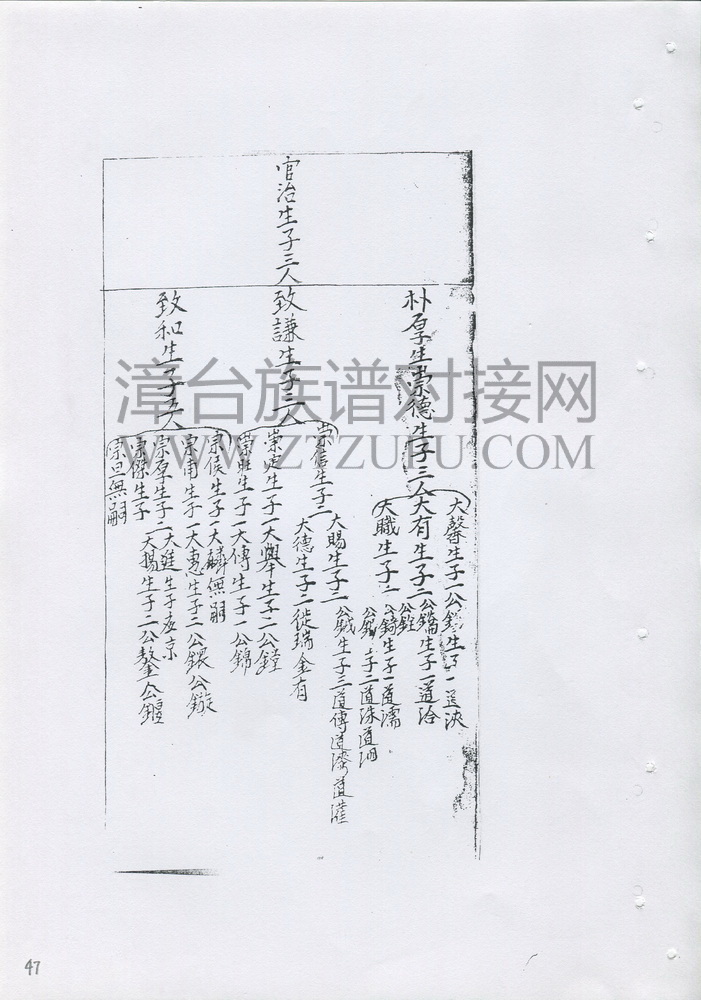 官治生子三人
朴厚生崇德生子三人
大馨生子一公 生子一道泱
大有生子二公鐺生子一道洽
公銓
大職生子二公錡生子一道濡
公 子二道洙道泗
致謙生子三人
崇信生子二
大賜生子一公鉞生子三道傳道 道灌
大德生子二徙瑞金有
崇定生子一大舉生子二公鏜
崇莊生子一大傅生子一公錦
致和生子五人
宗侯生子一大麟無嗣
宗甫生子一大惠生子二公鋃公鏇
宗厚生子二大進生子 京
大揚生子二公鏊公鍟
宗傑生子
宗旦無嗣
漳台族谱对接网
WWW.ZTZUPU.COM
47